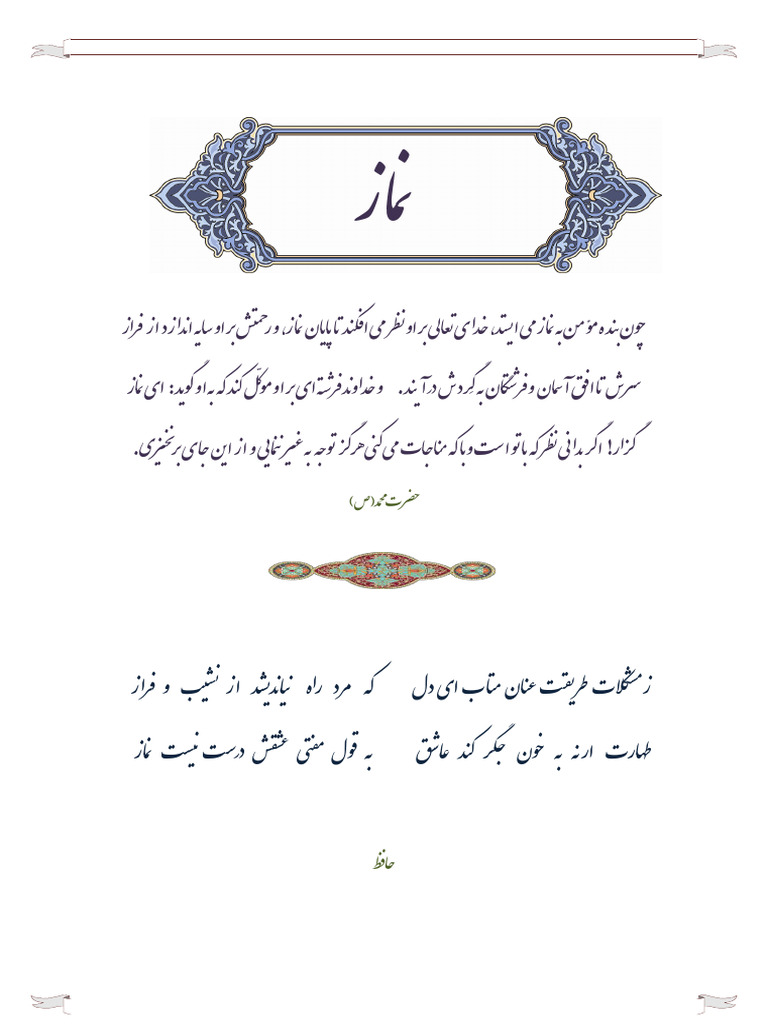 نماز
چون بنده مؤمن به نماز می ایستد، خدای تعالی بر او نظر می افکند تا پایان نماز، و رحمتش بر او سایه اندازد از فراز
سرش تا افق آسمان و فرشتگان به گِردش درآیند. و خداوند فرشته ای بر او موکّل کند که به او گوید: ای نماز
گزار! اگر بدانی نظر که با تو است و با که مناجات می کنی هرگز توجه به غیر ننمایی و از این جای برنخیزی.
حضرت محمد(ص)
ز مشکلات طریقت عنان متاب ای دل که مرد راه نیاندیشد از نشیب و فراز
طهارت ارنه به خون جگر کند عاشق به قول مفتی عشقش درست نیست نماز
حافظ